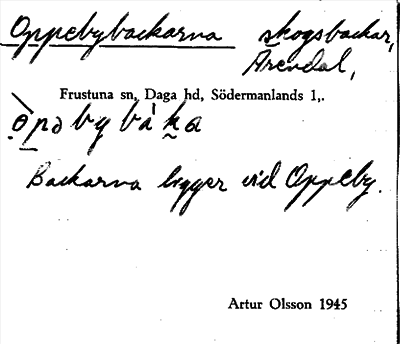 Oppebybackarna skogsbackar,
Årendal,
Frustuna sn, Daga hd, Södermanlands l,.
Backarna ligger vid Oppeby.
Artur Olsson 1945